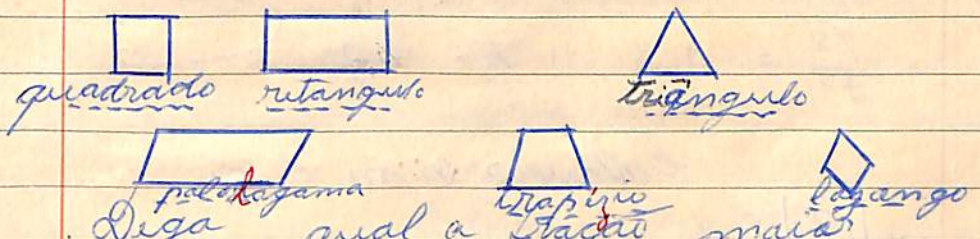 quadrado retangulo triângulo
palalagama trapízio lozango
Diga qual a fração maior